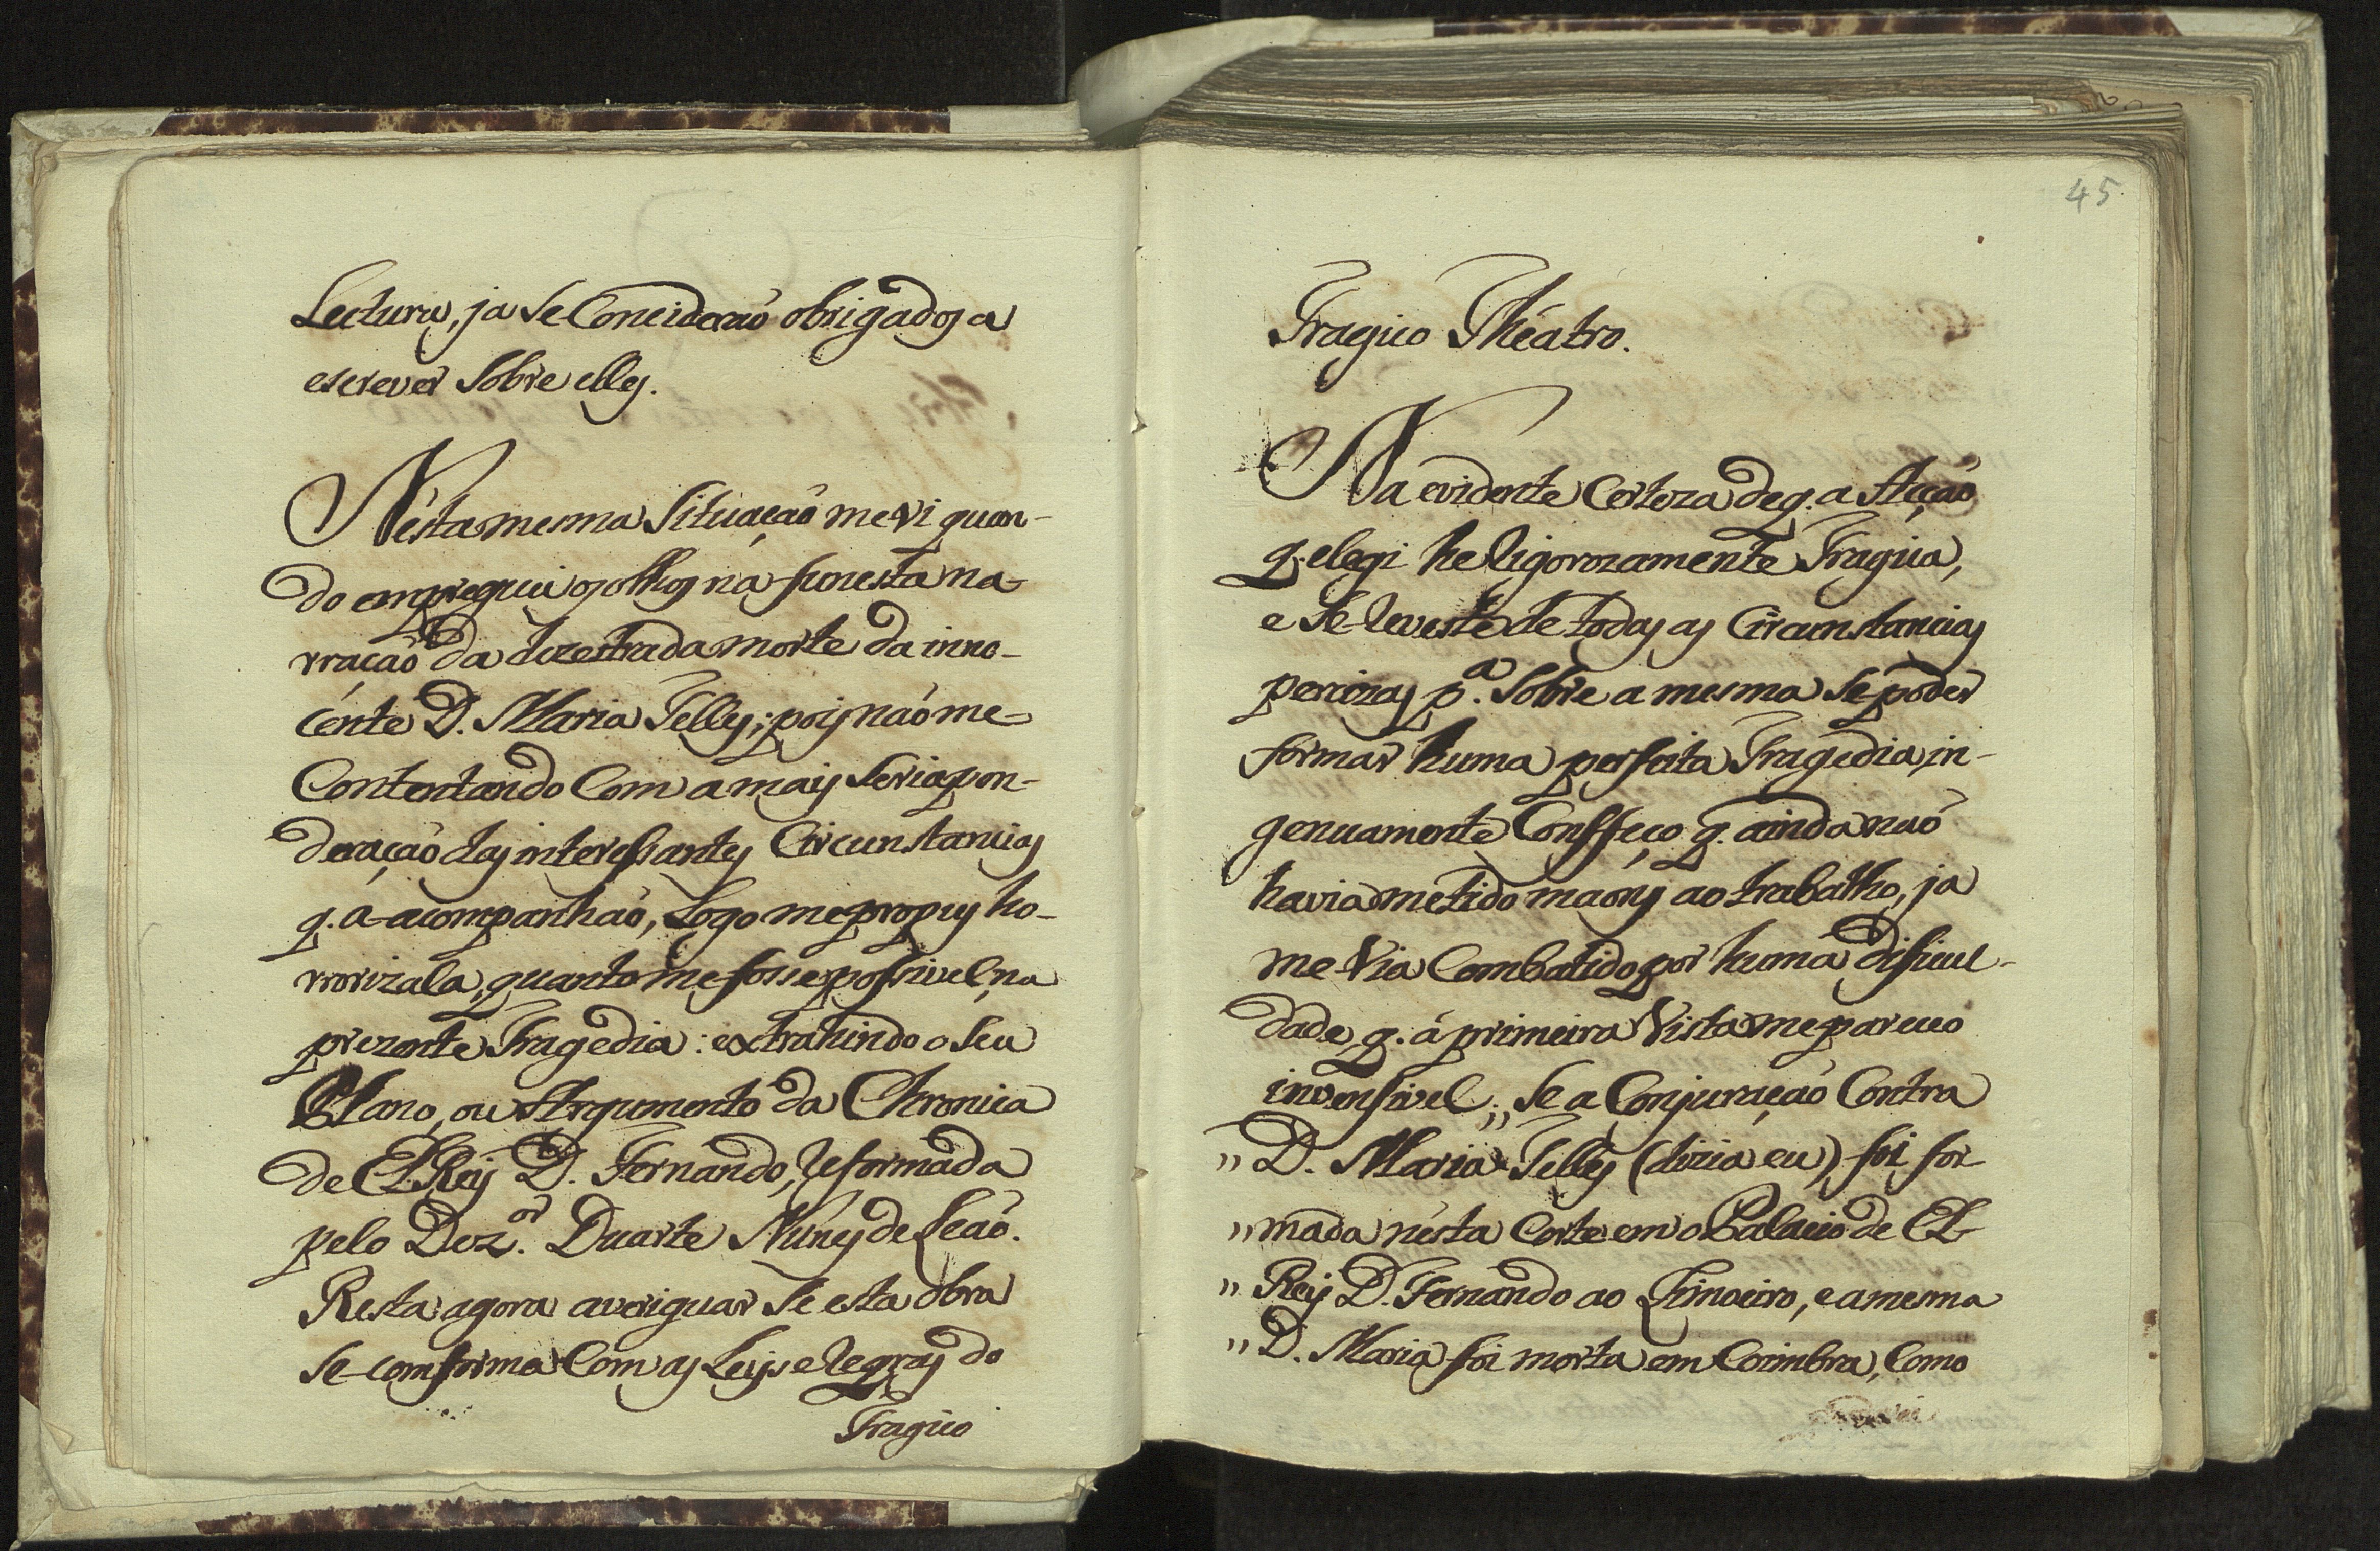 Lectura, ja se Conciderão obrigados a
escrever sobre elles.
Nésta mesma Situação me vi quan-
do empreguei os olhos na funesta na-
rração da dezestrada morte da inno-
cénte D. Maria Telles; pois não me
Contentando Com a mais seria pon-
deração das interessantes Circunstancias
q. a acompanhão, Logo me propus ho-
rrorizala, quanto me fosse possivel, na
prezente Tragedia: extrahindo o seu
Plano, ou Argumento da Chronica
de El Rey D. Fernando, reformada
pelo Dez.or Duarte Nunes de Leão.
Resta agora averiguar se esta obra
se comforma Com as Leys e regras do
Tragico
45
Tragico Théatro.
Na evidente Certeza de q. a Acção
q. elegi he rigorozamente Tragica,
e se reveste de todas as Circunstancias
percizas p.a sobre a mesma se poder
formar huma perfeita Tragedia, in-
genuamente Confféço q. ainda não
havia metido maons ao trabalho, ja
me Via Combatido por huma dificul-
dade, q. á primeira Vista me pareceo
invensivel; „ Se a Conjuração Contra
„ D. Maria Telles (dizia eu) foi for-
„ mada nésta Corte em o Palacio de El
„ Rey D. Fernando ao Limoeiro, e a mesma
„ D. Maria foi morta em Coimbra, Como